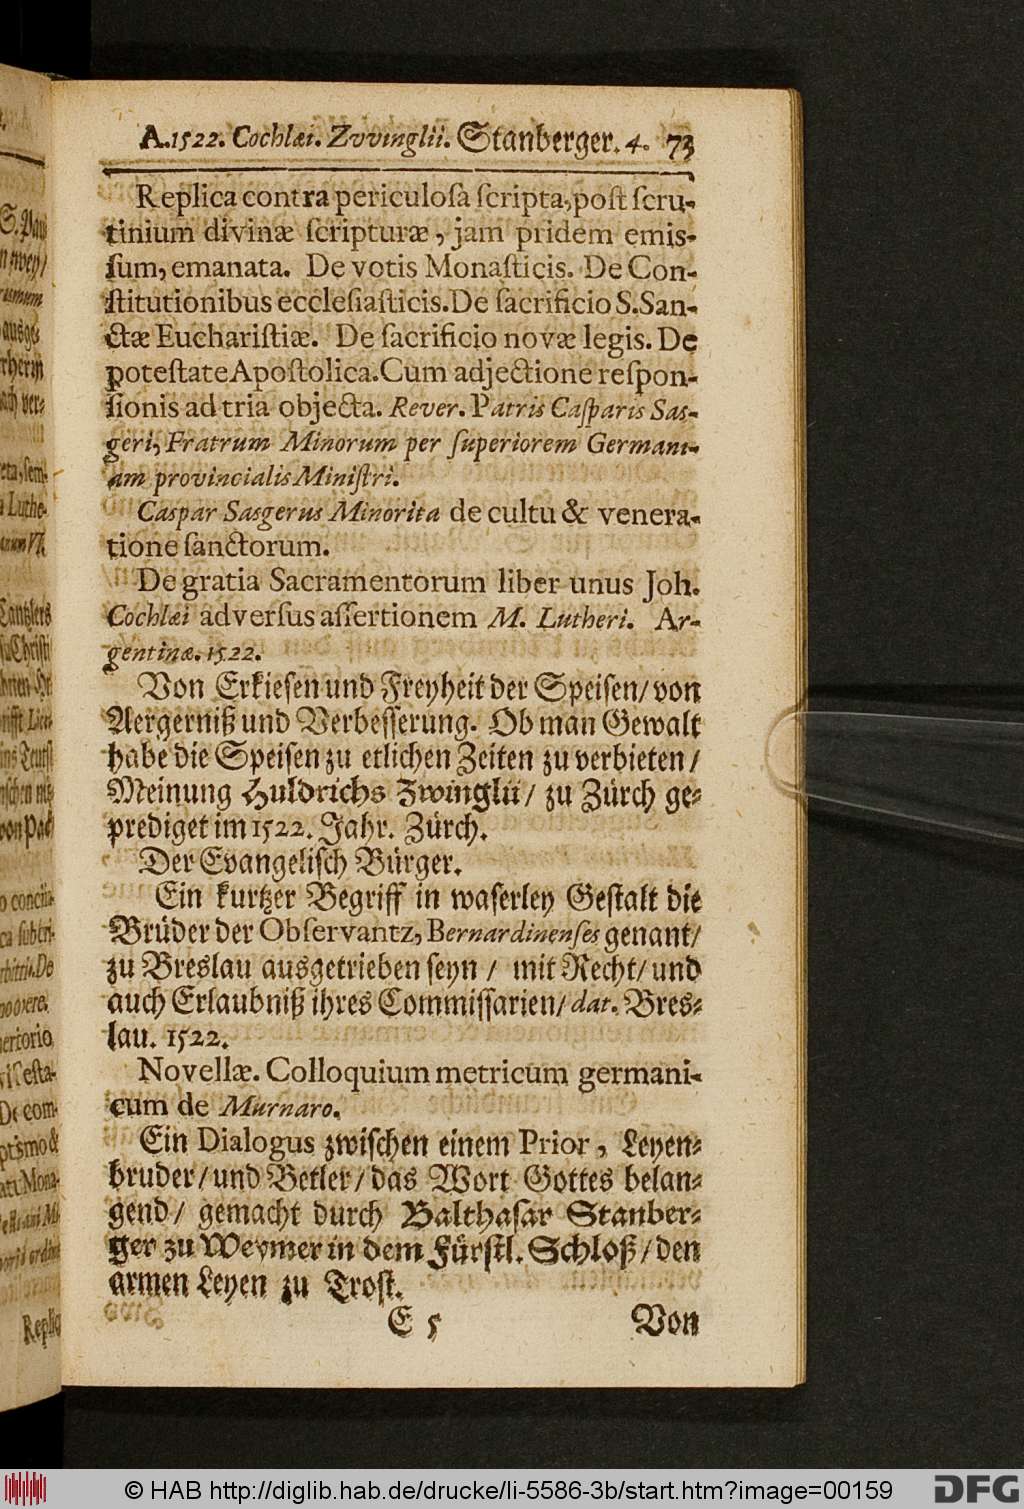 A. 1522. Cochlæi. Zvvinglii. Stanberger. 4. 73
Replica contra periculosa scripta, post scru-
tinium divinæ scripturæ, jam pridem emis-
sum, emanata. De votis Monasticis. De Con-
stitutionibus ecclesiasticis. De sacrificio S. San-
ctæ Eucharistiæ. De sacrificio novæ legis. De
potestate Apostolica. Cum adjectione respon-
sionis ad tria objecta. Rever. Patris Casparis Sas-
geri, Fratrum Minorum per superiorem Germani-
am provincialis Ministri.
Caspar Sasgerus Minorita de cultu & venera-
tione sanctorum.
De gratia Sacramentorum liber unus Joh.
Cochlæi adversus assertionem M. Lutheri. Ar-
gentinæ. 1522.
Von Erkiesen und Freyheit der Speisen/ von
Aergerniß und Verbesserung. Ob man Gewalt
habe die Speisen zu etlichen Zeiten zu verbieten/
Meinung Huldrichs Zwinglii/ zu Zürch ge-
prediget im 1522. Jahr. Zürch.
Der Evangelisch Bürger.
Ein kurtzer Begriff in waserley Gestalt die
Brüder der Observantz, Bernardinenses genant/
zu Breslau ausgetrieben seyn/ mit Recht/ und
auch Erlaubniß ihres Commissarien/ dat. Bres-
lau. 1522.
Novellæ. Colloquium metricum germani-
cum de Murnaro.
Ein Dialogus zwischen einem Prior, Leyen-
bruder/ und Betler/ das Wort Gottes belan-
gend/ gemacht durch Balthasar Stanber-
ger zu Weymer in dem Fürstl. Schloß/ den
armen Leyen zu Trost.
E 5 Von
© HAB http://diglib.hab.de/drucke/li-5586-3b/start.htm?image=00159
DFG